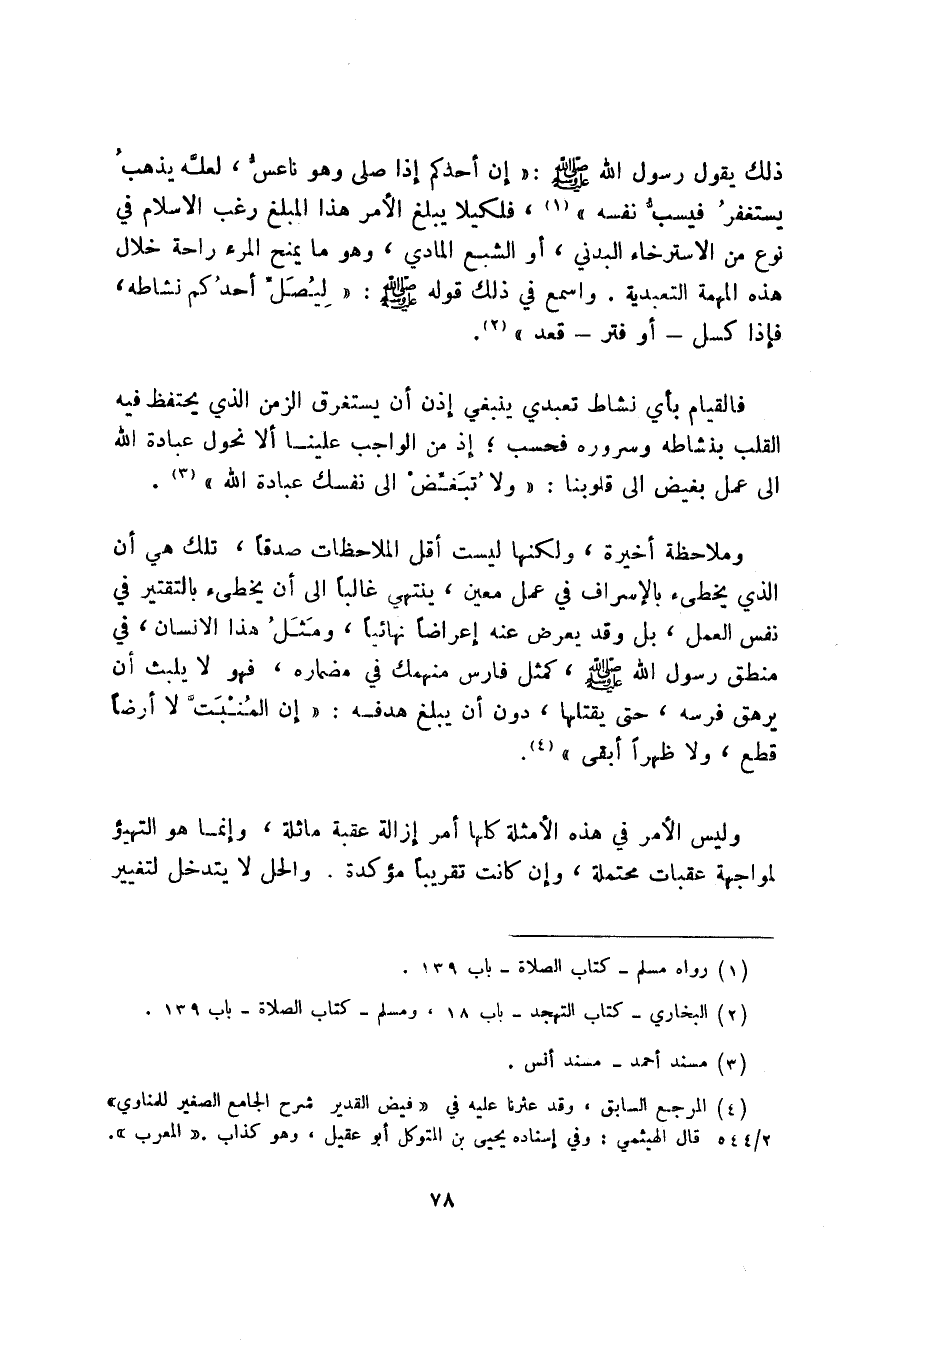 ذلك يقول رسول الله ﷺ : « إن أحدكم إذا صلى وهو ناعسٌ ، لعلَّه يذهبُ
يستغفرُ فيسبُّ نفسه » (١) ، فلكيلا يبلغ الأمر هذا المبلغ رغب الاسلام في
نوع من الاسترخاء البدني ، أو الشبع المادي ، وهو ما يمنح المرء راحة خلال
هذه المهمة التعبدية . واسمع في ذلك قوله ﷺ : « لِيُصَلِّ أحدُكم نشاطه ،
فإذا كسل – أو فتر – قعد » (٢).
فالقيام بأي نشاط تعبدي ينبغي إذن أن يستغرق الزمن الذي يحتفظ فيه
القلب بنشاطه وسروره فحسب ؛ إذ من الواجب علينا ألا نحول عبادة الله
الى عمل بغيض الى قلوبنا : « ولا تُبَغِّضْ الى نفسك عبادة الله » (٣) .
وملاحظة أخيرة ، ولكنها ليست أقل الملاحظات صدقاً ، تلك هي أن
الذي يخطىء بالإسراف في عمل معين ، ينتهي غالباً الى أن يخطىء بالتقتير في
نفس العمل ، بل وقد يعرض عنه إعراضاً نهائياً ، ومَثَلُ هذا الانسان ، في
منطق رسول الله ﷺ ، كمثل فارس منهمك في مضماره ، فهو لا يلبث أن
يرهق فرسه ، حتى يقتلها ، دون أن يبلغ هدفه : « إن المُنْبَتَّ لا أرضاً
قطع ، ولا ظهراً أبقى » (٤).
وليس الأمر في هذه الأمثلة كلها أمر إزالة عقبة ماثلة ، وإنما هو التهيؤ
لمواجهة عقبات محتملة ، وإن كانت تقريباً مؤكدة . والحل لا يتدخل لتغيير
(١) رواه مسلم – كتاب الصلاة – باب ١٣٩ .
(٢) البخاري – كتاب التهجد – باب ١٨ ، ومسلم – كتاب الصلاة – باب ١٣٩ .
(٣) مسند أحمد – مسند أنس .
(٤) المرجع السابق ، وقد عثرنا عليه في « فيض القدير شرح الجامع الصغير للمناوي»
٥٤٤/٢ قال الهيثمي : وفي إسناده يحيى بن المتوكل أبو عقيل ، وهو كذاب .« المعرب ».
٧٨